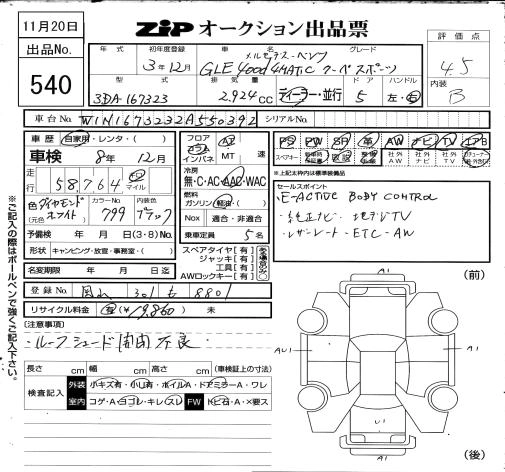 11月20日
ZIP オークション出品票
出品No.
540
年式 初年度登録 車名 グレード
3年12月 メルセデス・ベンツ GLE400d 4MATIC クーペスポーツ
評価点
4.5
内装
B
型式 排気量 ドア ハンドル
3DA-167323 2.924cc ディーラー・並行 5 左・右
車台No. W1N1673232A550392 シリアルNo.
車歴 自家用・レンタ・( )
車検 8年 12月
走行 58,764 km マイル
フロア コラム インパネ AT MT 速
冷房 無・C・AC・AAC・WAC
燃料 ガソリン・軽油・( )
Nox 適合・非適合
乗車定員 5名
PS PW SR 革 AW ナビ TV エアB
スペアキー 取説 社外AW 社外ナビ 社外TV
※上記太枠内は標準装備品
色 ダイヤモンドホワイト (元色) カラーNo. 799 内装色 ブラック
予備検 年 月 日(3・8)No.
形状 キャンピング・放宣・事務室・( )
名変期限 年 月 日迄
スペアタイヤ[有]
ジャッキ[有]
工具[有]
AWロックキー[有]
セールスポイント
・E-ACTIVE BODY CONTROL
・純正ナビ・地デジTV
・レザーシート・ETC・AW
登録No. 301 も 8801
リサイクル料金 有(¥19,860) 未
[注意事項]
・ルーフシェード開閉不良
長さ cm 幅 cm 高さ cm (車検証上の寸法)
検査記入 外装 小キズ有・小凹有・ボイルA・ドアミラーA・ワレ
室内 コゲ・A・ヨゴレ・キレ・スレ FW トビ石・A・×要ス
ご記入の際はボールペンで強くご記入下さい。
(前)
A1
AU1
A1
U1
A1
(後)